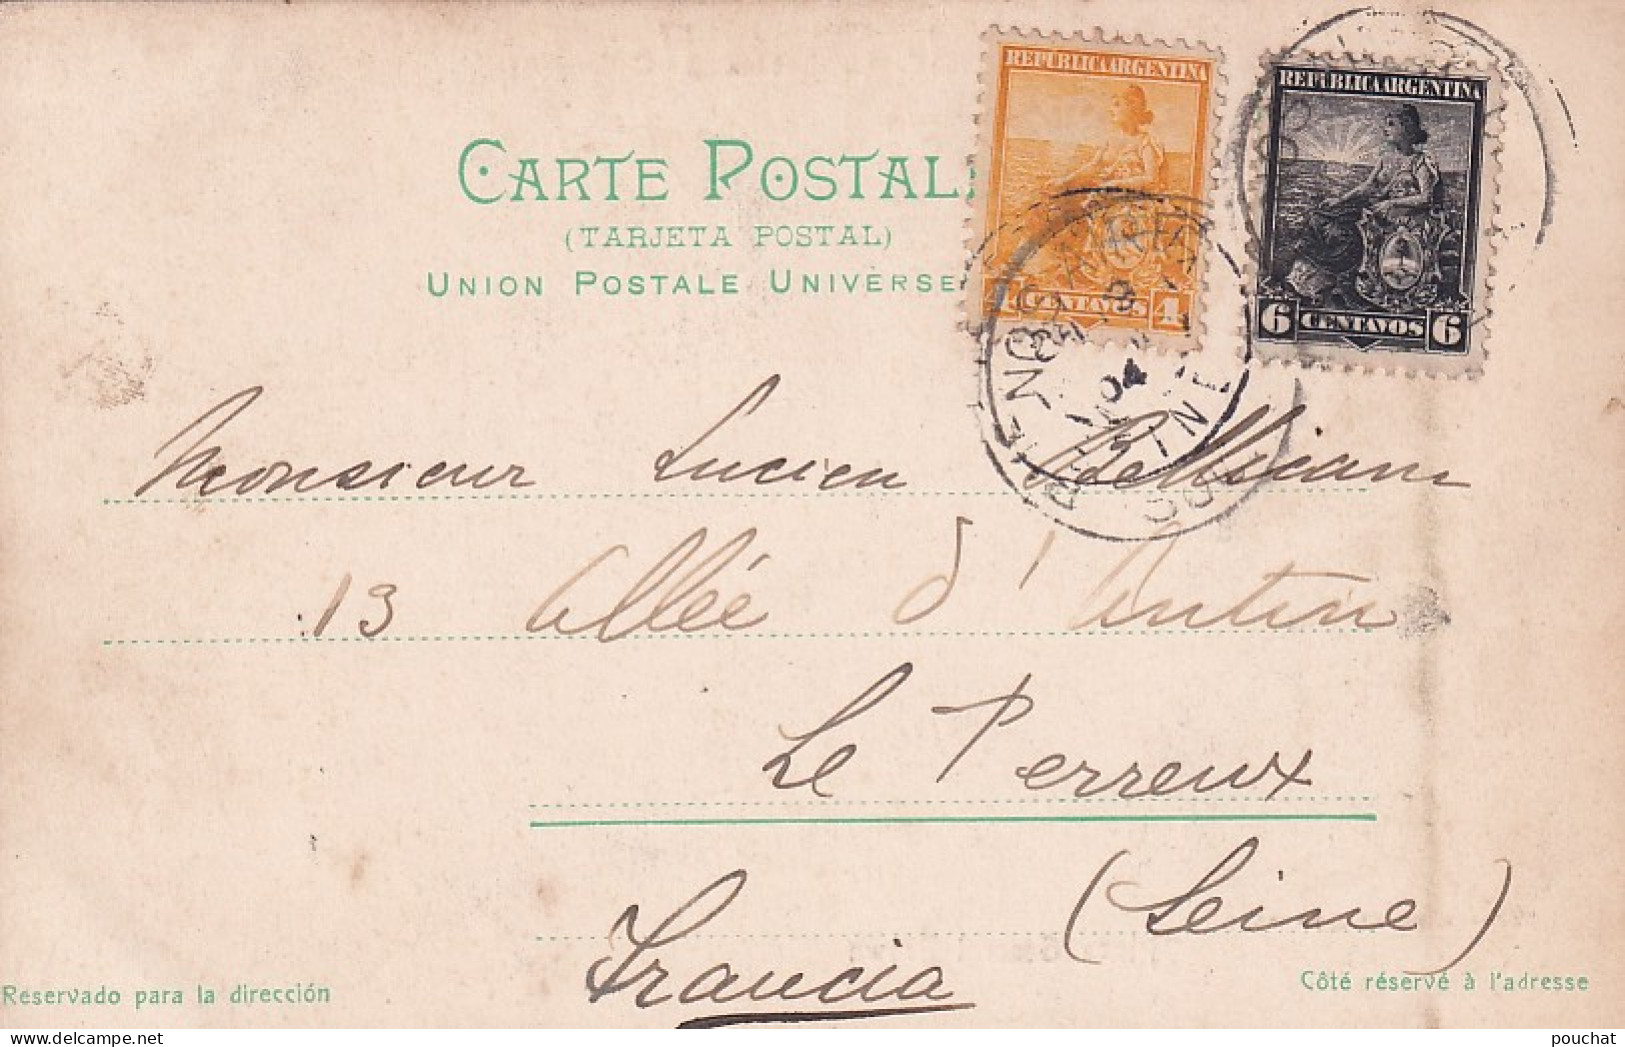 REPUBLICA ARGENTINA
REPUBLICA ARGENTINA
CENTAVOS 4
6 CENTAVOS 6
CARTE POSTAL
(TARJETA POSTAL)
UNION POSTALE UNIVERSE
BUENOS AIRES
04
Monsieur Lucien Bellicam
13 Allée d'Antin
Le Perreux
(Seine)
Francia
Reservado para la dirección
Côté réservé à l'adresse
pouchat